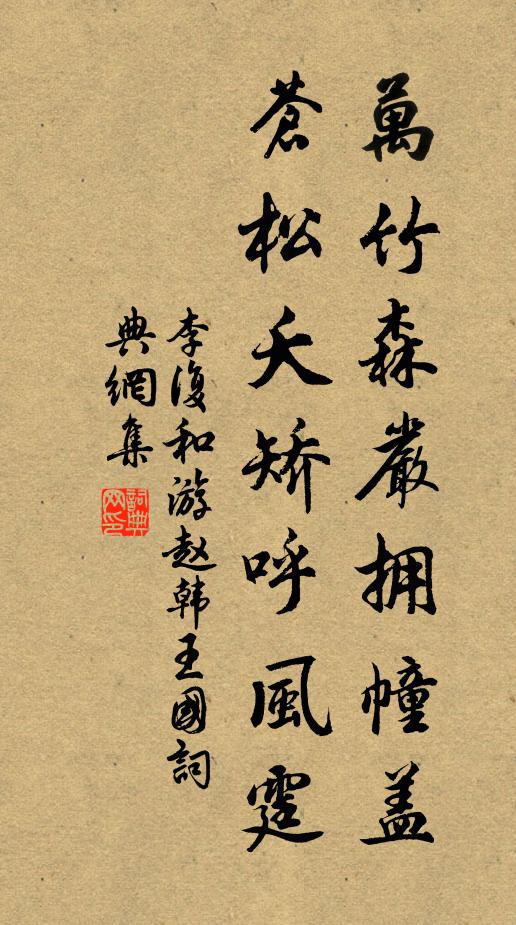 萬竹森嚴拥幢盖
蒼松夭矯呼風霆
李復和游赵韩王國詞
典網集
詞典网印